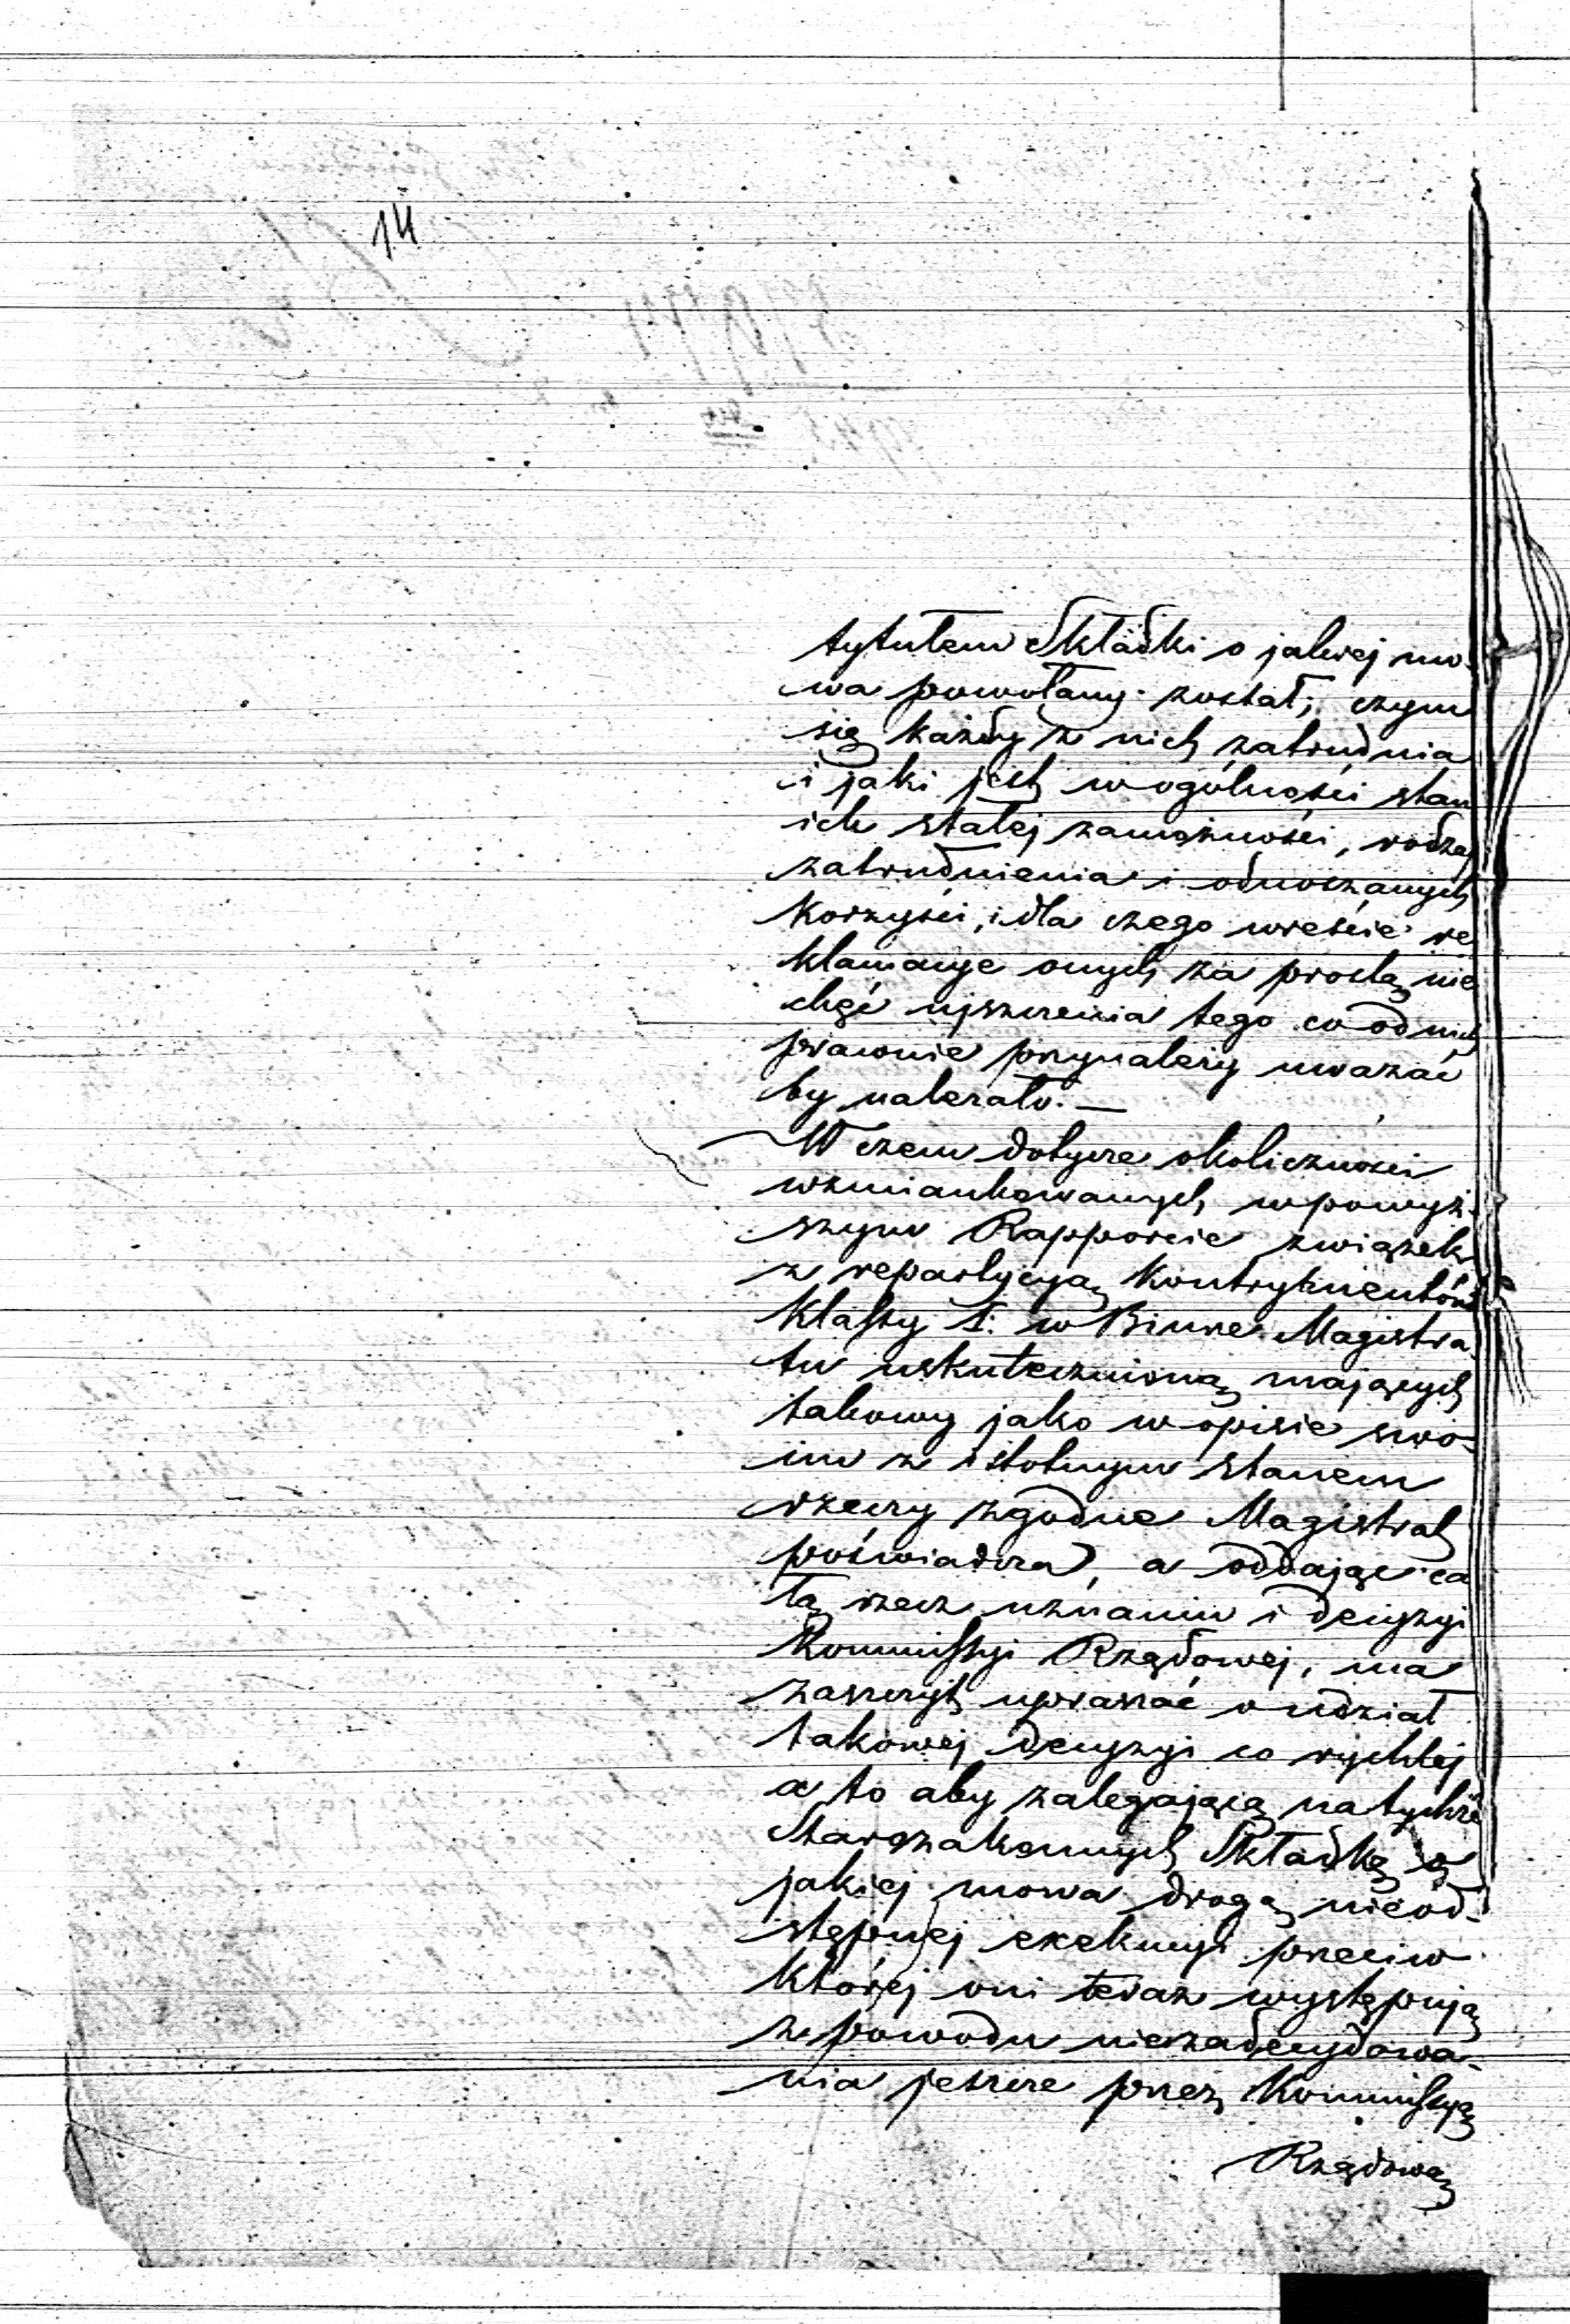 14
tytułem Składki o jakiej mo-
wa powołany został; czym
się każdy z nich zatrudnia
i jaki jest w ogólności stan
ich stałej zamożności, rodzaj
zatrudnienia i odnoszanych
korzyści, i dla czego wreście re
klamacye onych za prostą nie
chęć ujszczenia tego co od nich
prawnie przynależy uważać
by należało. —
W czem dotycze okoliczności
wzmiankowanych w powyż-
szym Rapporcie związek
z repartycyą Kontrybuentów
Klassy I. w Biurze Magistra-
tu uskutecznioną mających
takowy jako w opisie swo-
im z istotnym stanem
rzeczy zgodne Magistrat
poświadcza, a oddając ca
łą rzecz uznaniu i decyzyi
Kommissyi Rządowej, ma
zaszczyt upraszać o udział
takowej decyzyi co rychlej
a to aby zalegającą na tychże
Starozakonnych Składkę o
jakiej mowa drogą nieod-
stępnej exekucyi przeciw
której oni teraz występują
z powodu niezadecydowa-
nia jeszcze przez Kommissyą
Rządową